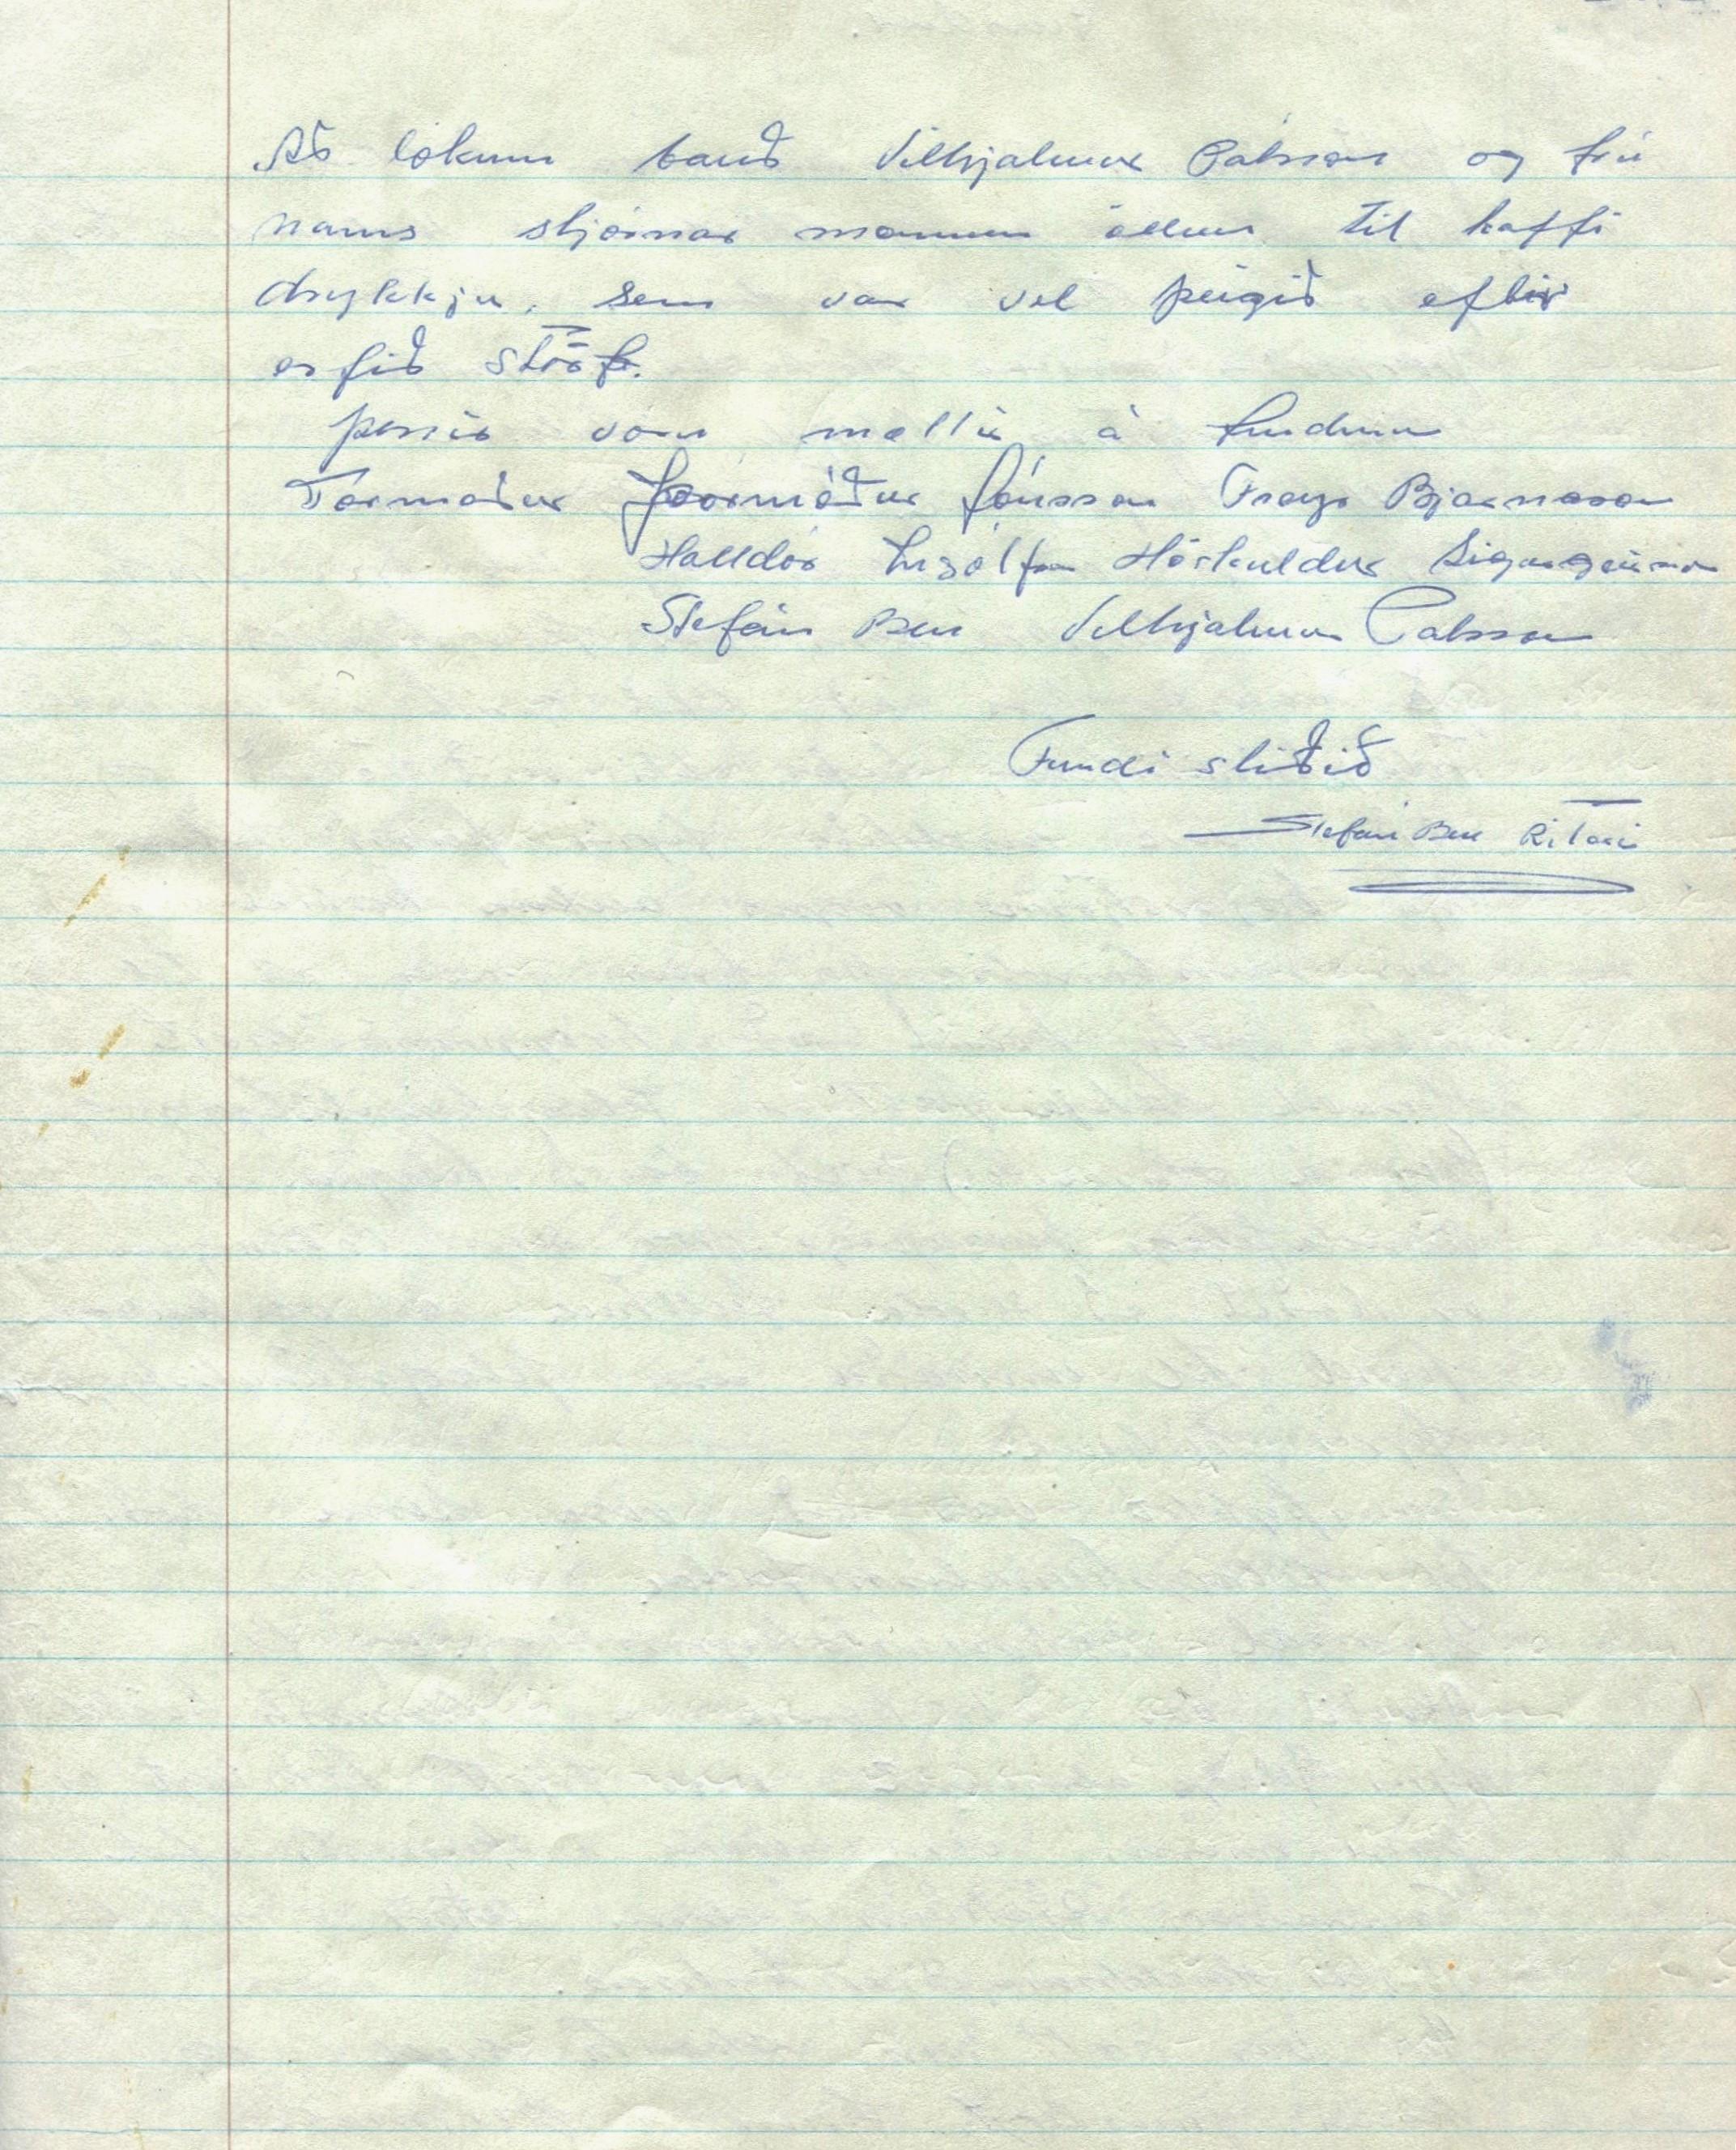 Að lokum bauð Vilhjalmur Pálsson og frú
hans stjórnar mönnum öllum til kaffi
drykkju, sem var vel þeigið eftir
erfið störf.
þessir voru mættir á fundinum
Formaður Þormóður Jónsson Freyr Bjarnason
Halldór Ingólfsson Höskuldur Sigurgeirsson
Stefán Ben Vilhjalmur Pálsson
Fundi slitið
Stefán Ben Ritari